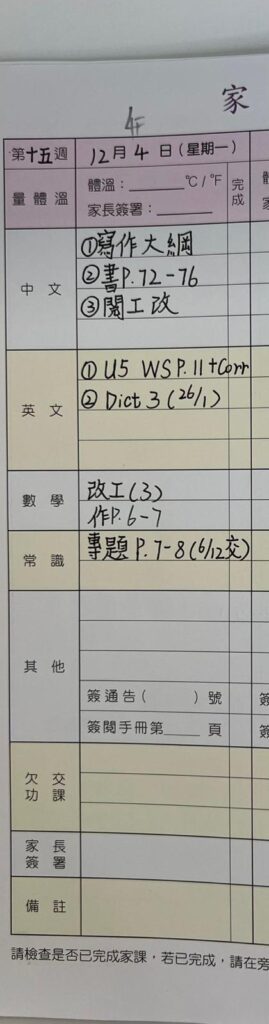 家
第十五週 12月4日(星期一)
量體溫 體溫：______℃/℉ 完成
家長簽署：______
中文 ①寫作大綱
②書P.72-76
③閱工改
英文 ① U5 WS P.11+Corr
② Dict 3 (26/1)
數學 改工(3)
作P.6-7
常識 專題 P.7-8(6/12交)
其他
簽通告(　　)號
簽閱手冊第____頁
欠交功課
家長簽署
備註
請檢查是否已完成家課，若已完成，請在旁